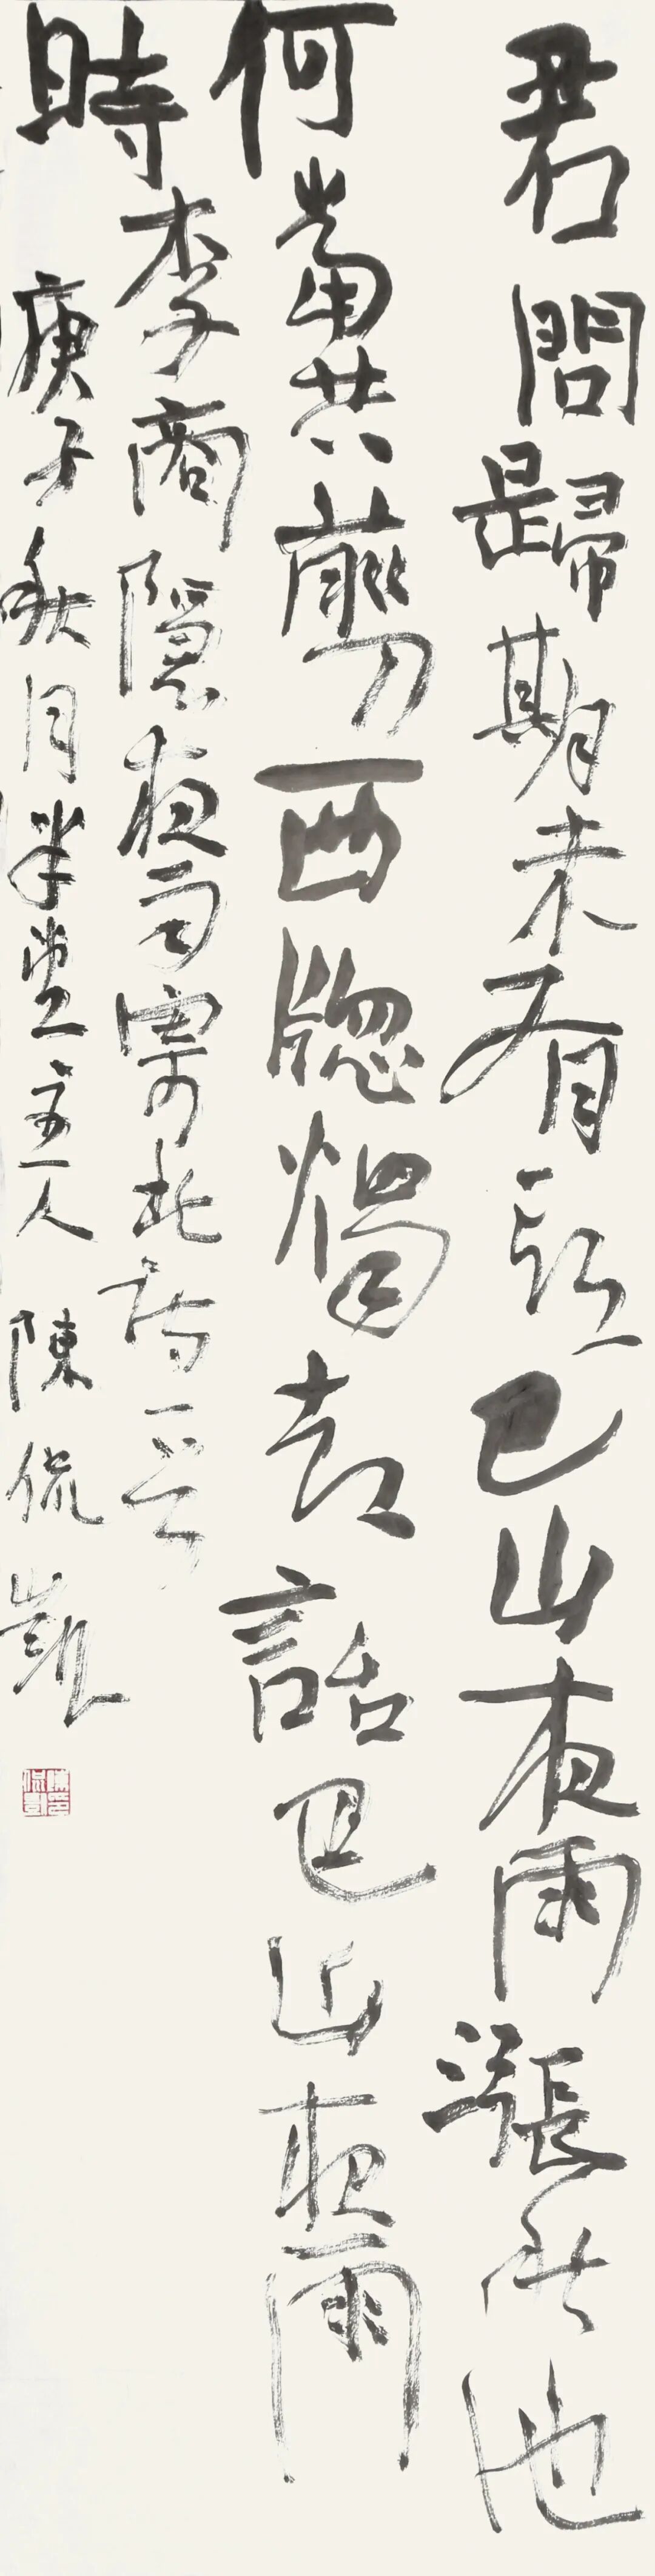 君問歸期未有期巴山夜雨漲秋池
何當共剪西牕燭却話巴山夜雨
時李商隱夜雨寄北詩一首
庚子秋月半堂主人陳侃凱